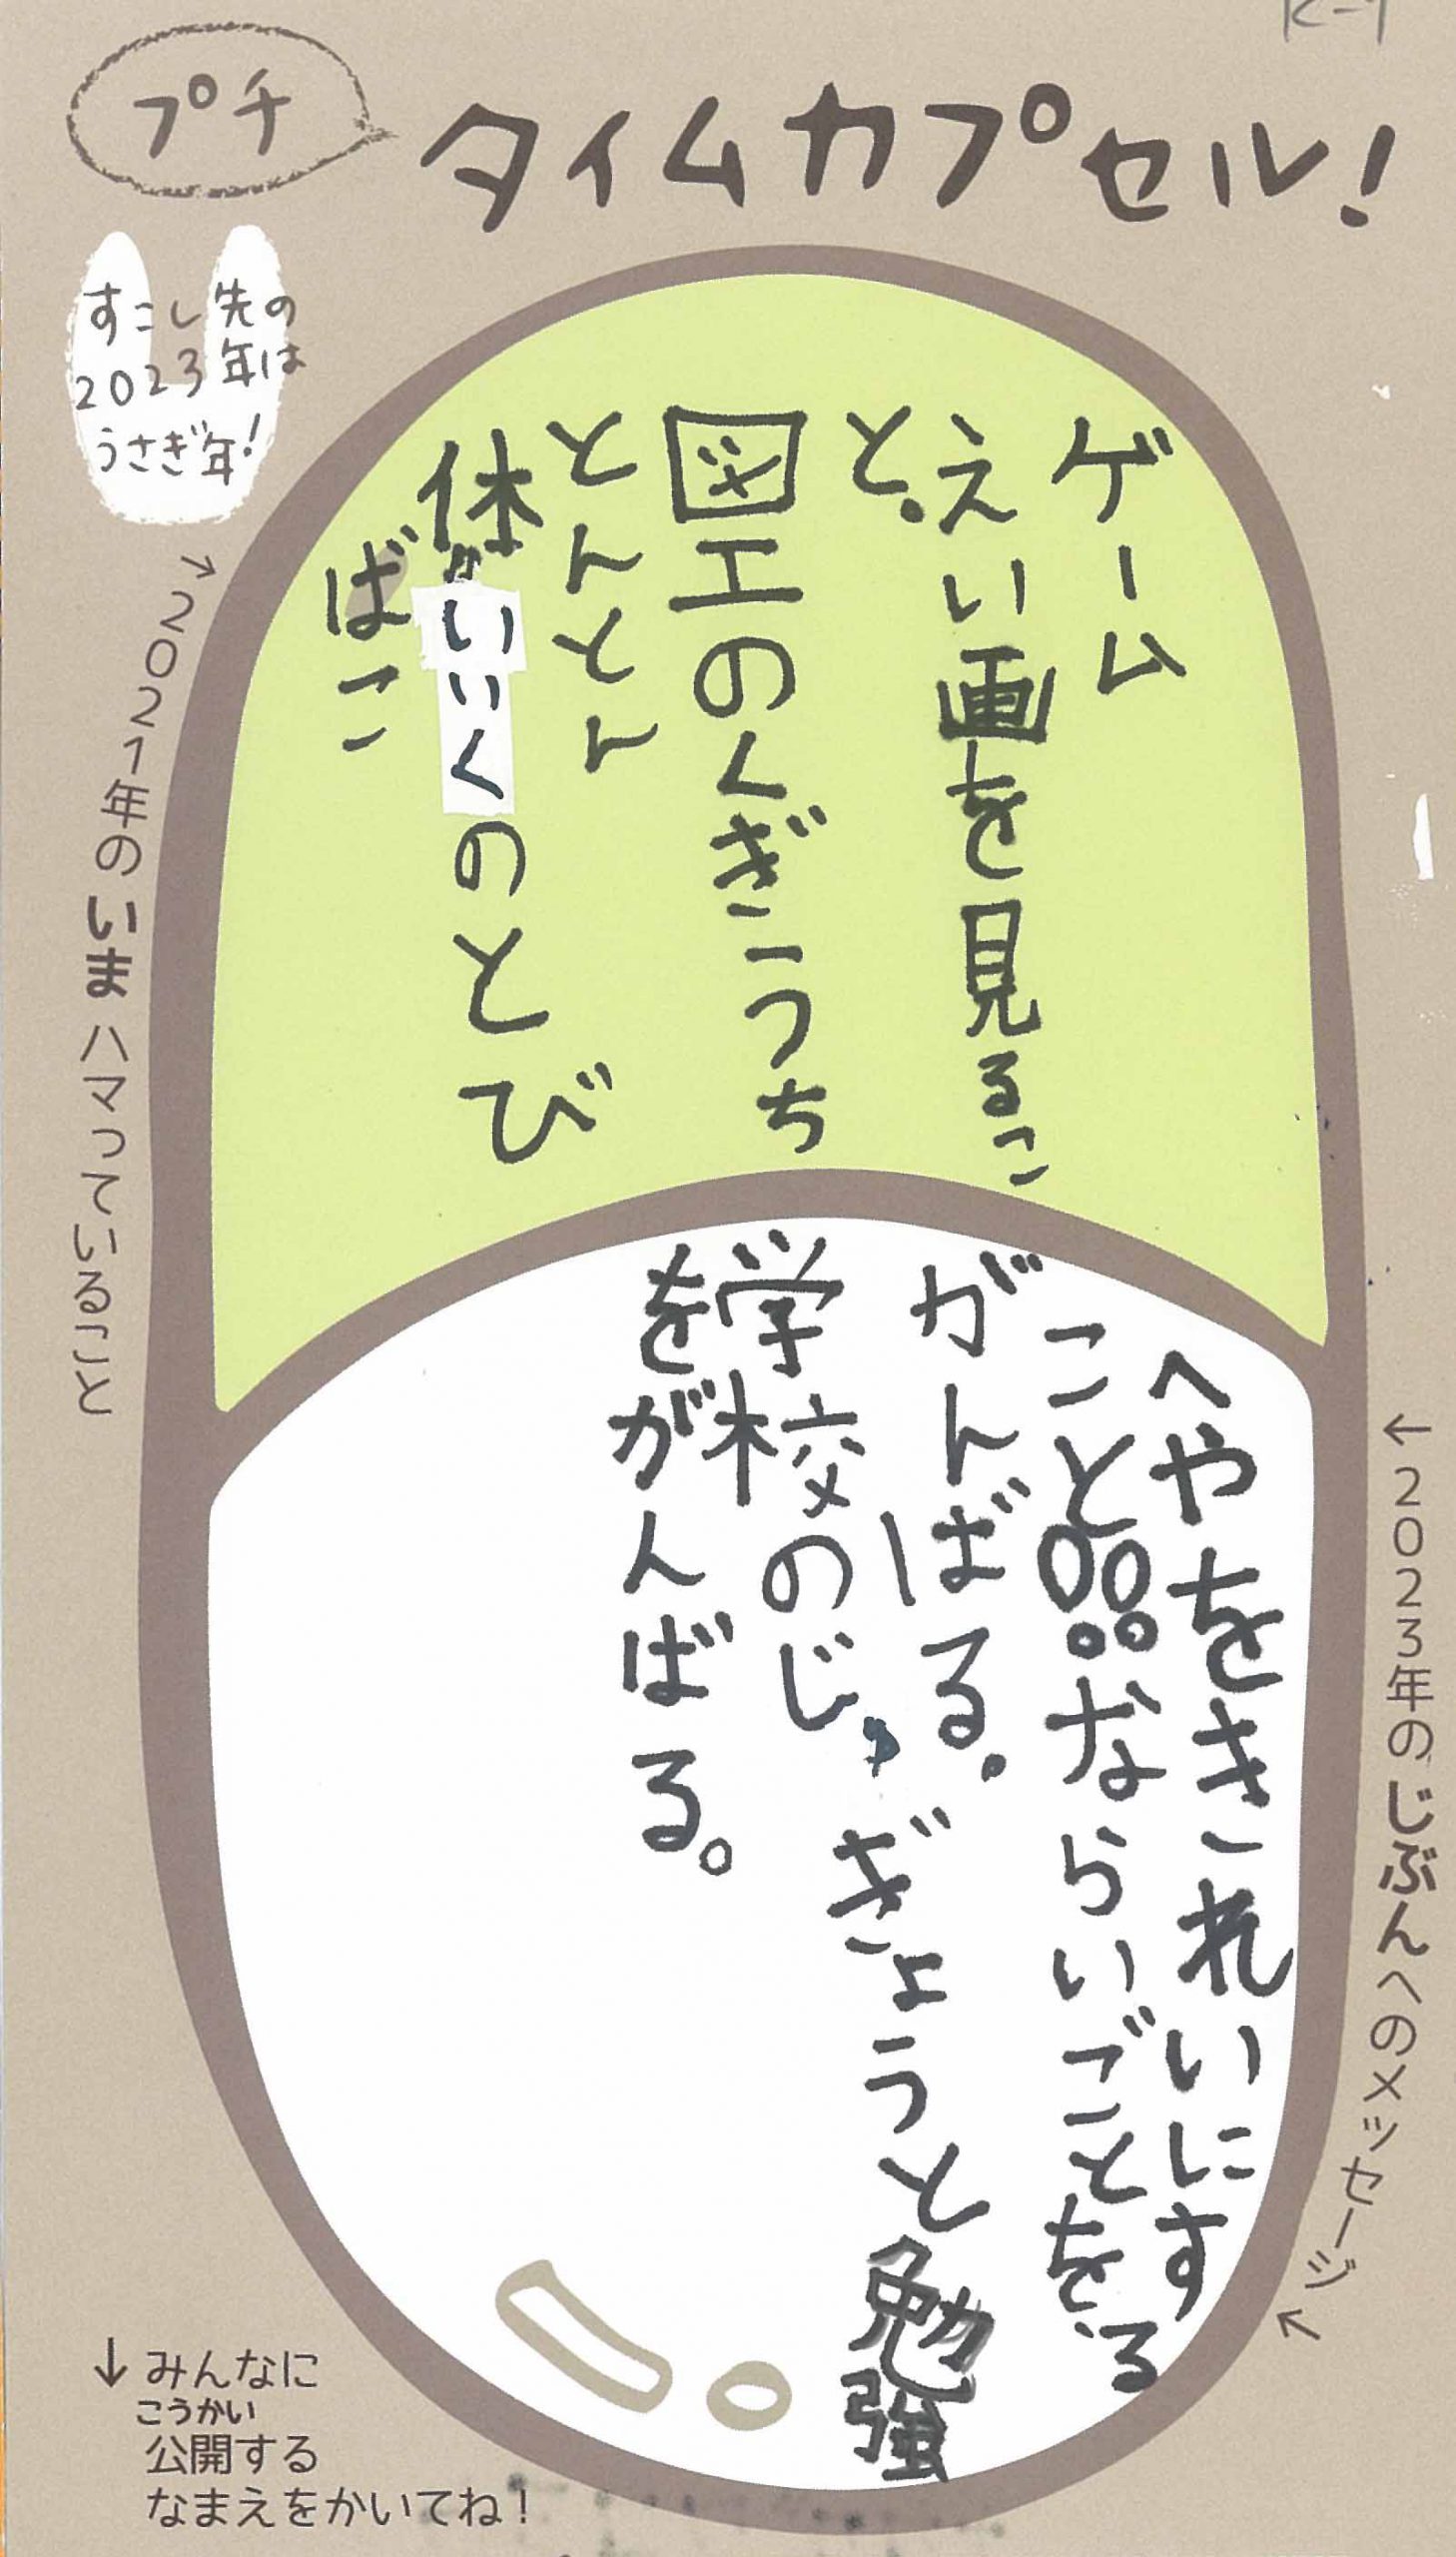 プチ
タイムカプセル!
すこし先の
2023年は
うさぎ年!
→2021年のいまハマっていること
ゲーム
えい画を見るこ
と。
図工のくぎうち
とんとん
体いいくのとび
ばこ
←2023年のじぶんへのメッセージ→
へやをきれいにす
る
こと。ならいごとを、
がんばる。
学校のじゅぎょうと勉強
をがんばる。
↓みんなに
こうかい
公開する
なまえをかいてね!